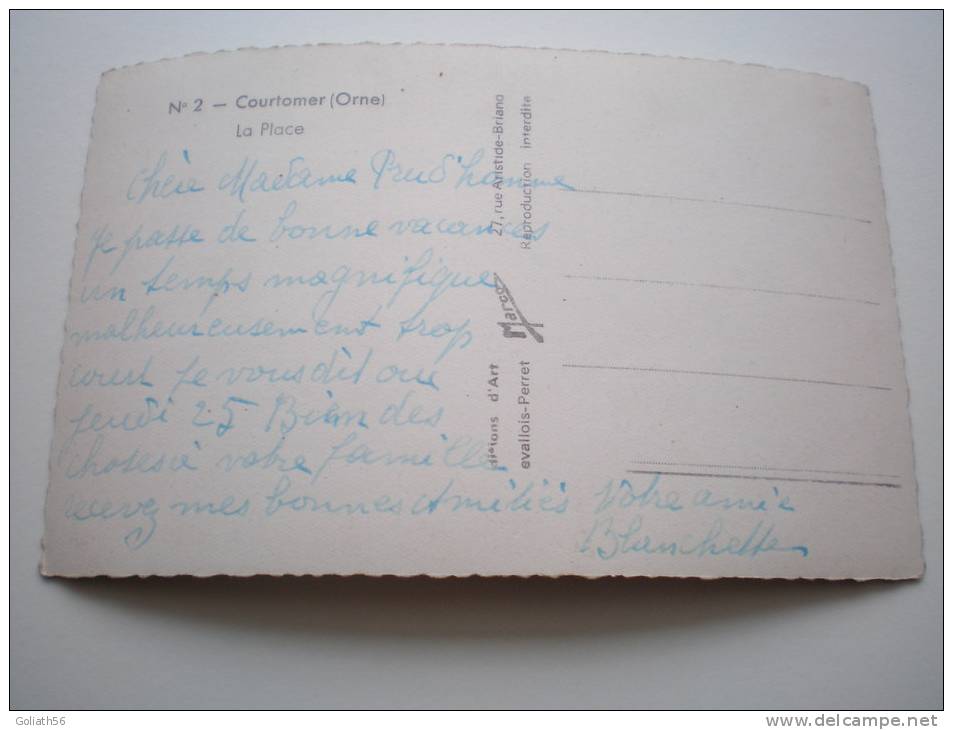 N° 2 — Courtomer (Orne)
La Place
Chère Madame Prud'homme
Je passe de bonne vacances
un temps magnifique
malheureusement trop
court Je vous dit au
jeudi 25 Bien des
choses à votre famille
recevez mes bonnes Amitiés
Votre amie
Blanchette
27, rue Aristide-Briand
Reproduction interdite
Marco
ditions d'Art
evallois-Perret
Goliath56
www.delcampe.net